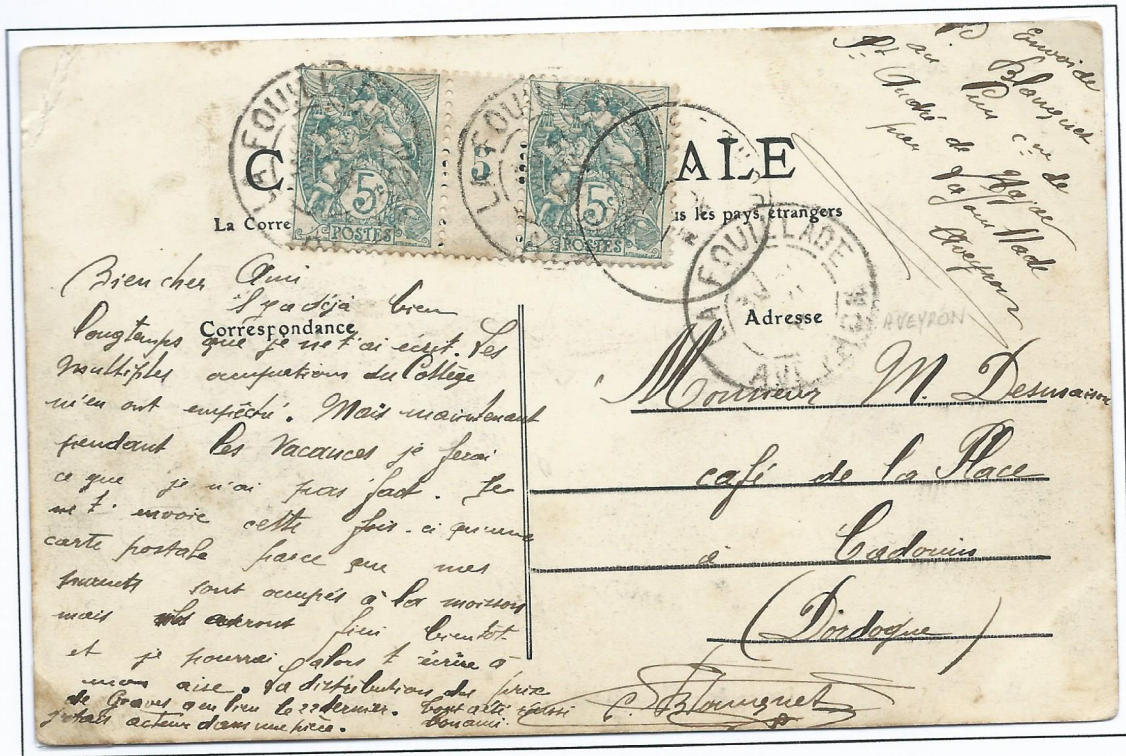 Envoi de
Blanquet
au Puis cne de
St André de Najac
par Lafouillade
Aveyron
C ALE
La Corre us les pays étrangers
5c
POSTES
5
5c
POSTES
LA FOUILLADE
LA FOUILLADE
LA FOUILLADE
AVEYRON
AVEYRON
Correspondance
Adresse
Bien cher Ami
Il y a déjà bien
longtemps que je ne t'ai écrit. Les
multiples occupations du Collège
m'en ont empêché. Mais maintenant
pendant les vacances je ferai
ce que je n'ai pas fait. Je
ne t'envoie cette fois-ci qu'une
carte postale parce que mes
sont occupés à la moisson
mais ils auront fini bientôt
et je pourrai alors t'écrire à
mon aise. La distribution des prix
de Graves a eu lieu le 22 dernier. Tout a été réussi
j'étais acteur dans une pièce. bonami.
Monsieur M. Desmaison
café de la Place
à Cadouin
(Dordogne)
C. Blanquet